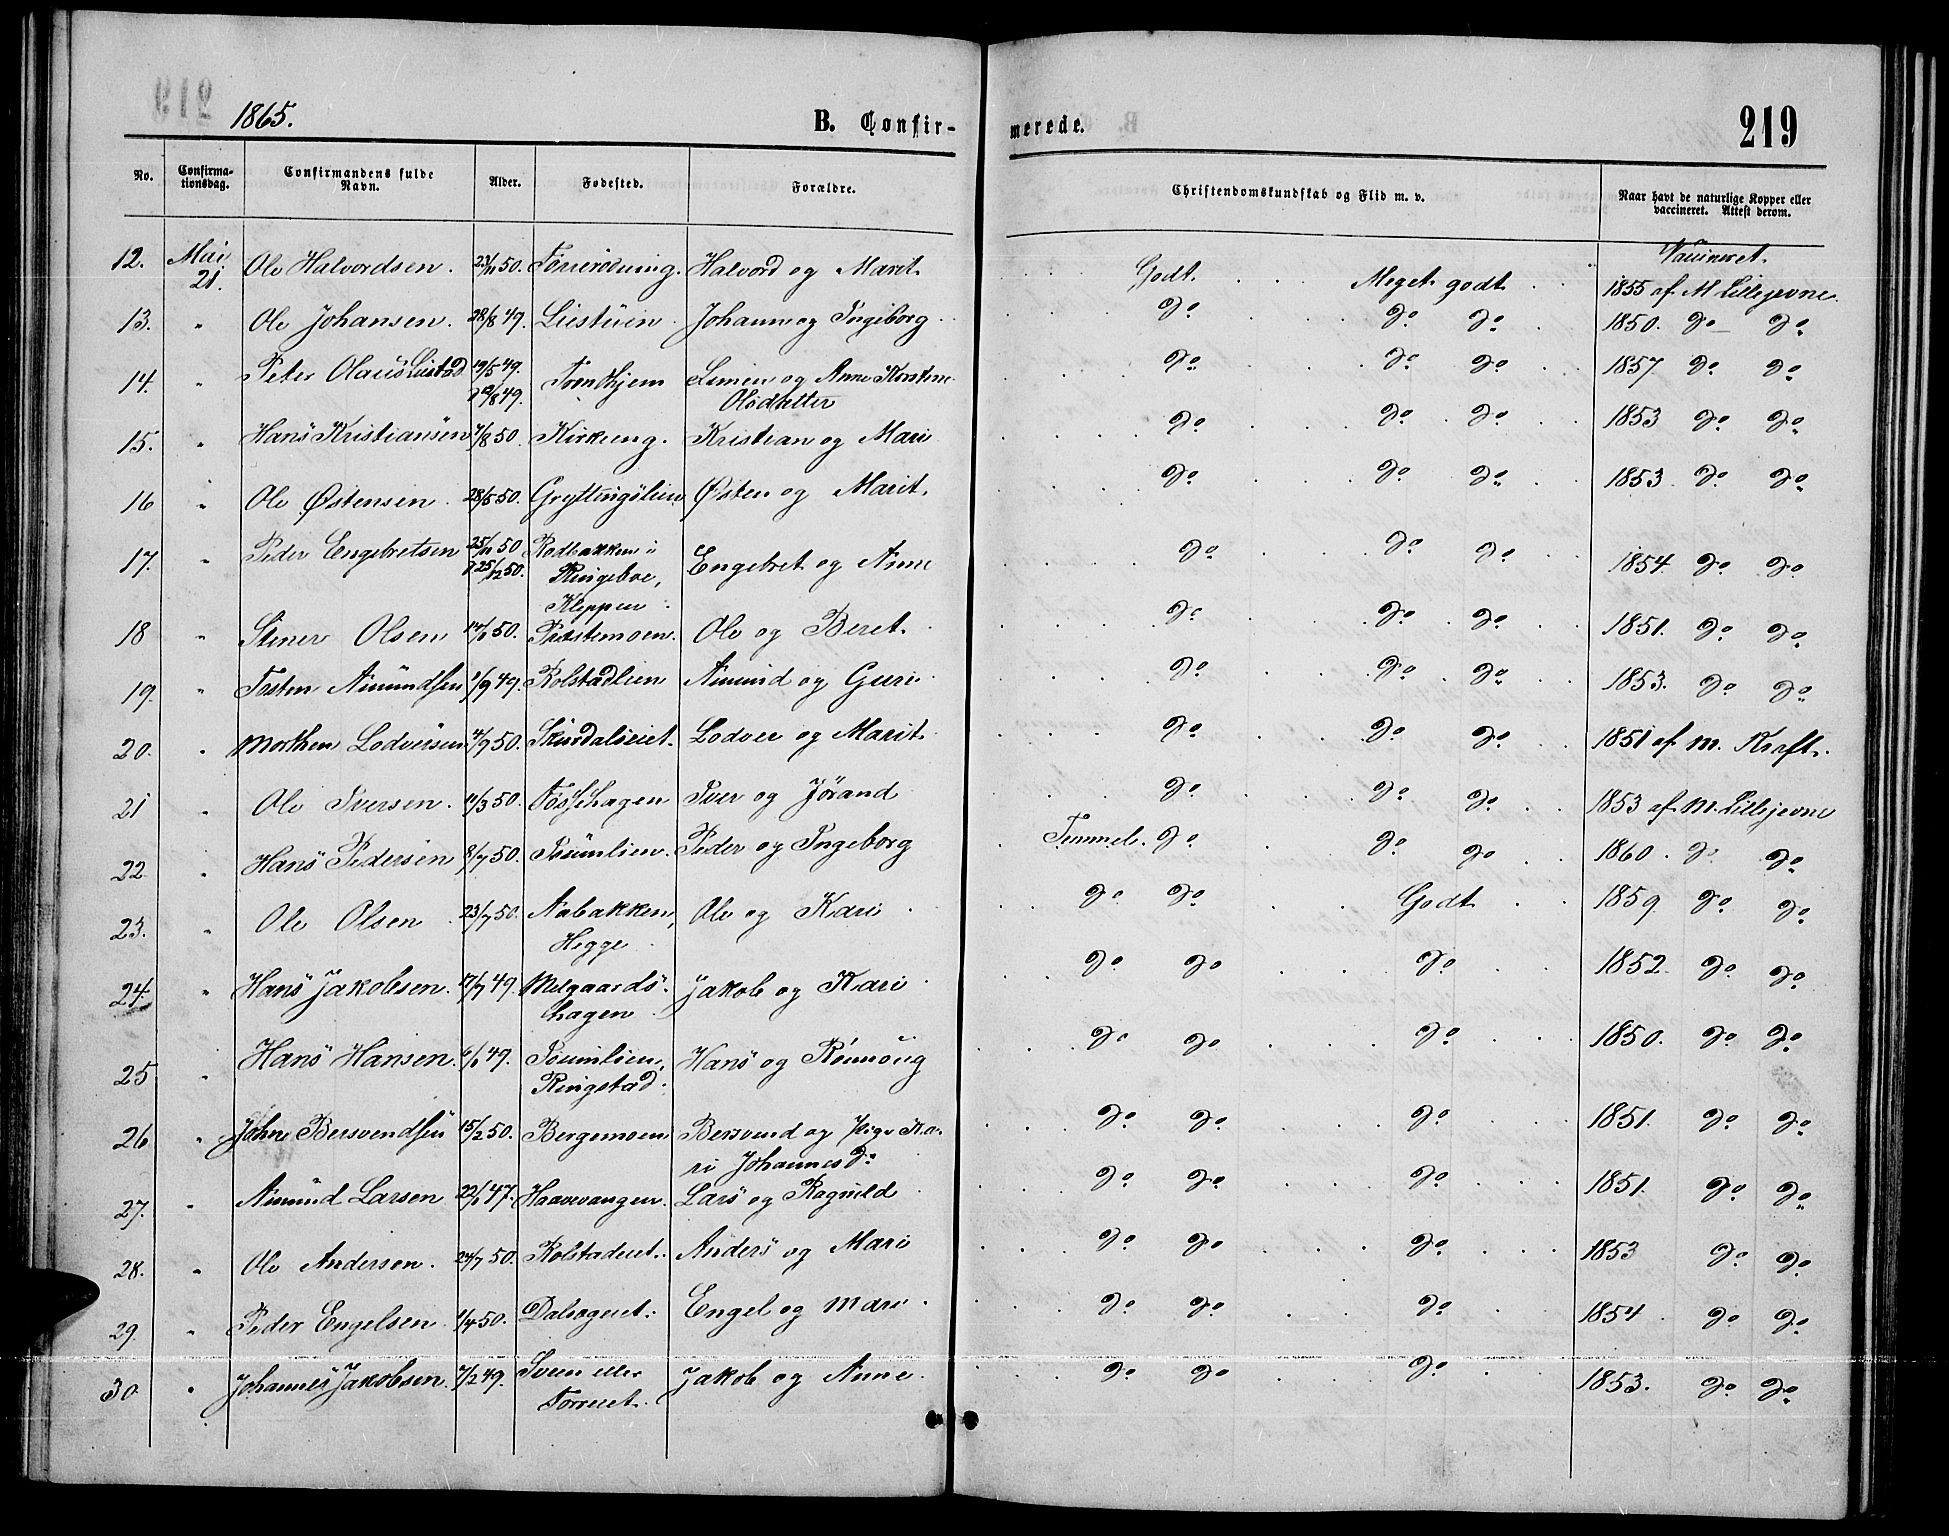 219
1865.
B. Confir-
merede.
219
No.
Confirma-
tionsdag.
Confirmandens fulde
Navn.
Alder.
Fødested.
Forældre.
Christendomskundskab og Flid m. v.
Naar havt de naturlige Kopper eller
vaccineret. Attest derom.
Vaccineret.
12. Mai 21. Ole Halvordsen. 23/11 50. Halvord og Marit. Godt. Meget godt 1855 af M Lillejevne.
13. " Ole Johansen. 28/8 49. Liestuen Johannes og Ingeborg do do do 1850. do do
14. " Peter Olaus Liestad 19/5 49. Trondhjem Simen og Anne Kirstine do do do 1857 do do
d 12/8 49. Olsdatter
15. " Hans Kristiansen 4/8 50. Kirkeeng. Kristian og Mari do do do 1853 do do
16 " Ole Østensen. 28/5 50. Gryttingslien Østen og Marit. do do do 1853. do do
17. " Peder Engebretsen 25/11 50 Rodbakken i Engebret og Anne do do do 1854 do do
d 25/12 50. Ringeboe,
Kleppen
18 " Stener Olsen 50. Præstemoen. Ole og Beret. do do do 1851. do do
19. " Torsten Amundsen 1/9 49. Rolstadlien Amund og Guri do do do 1853. do do
20. " Morthen Lodversen 4/9 50. Skurdalseiet. Lodver og Marit do do do 1851 af M. Kraft.
21 " Ole Iversen. 11/3 50. Fossehagen Iver og Jørand do do do 1853 af M. Lillejevne
22 " Hans Pedersen 8/7 50. Toumlien. Peder og Ingeborg Temmel. do do do 1860. do do
23. " Ole Olsen 23/7 50. Aabakken, Ole og Kari do do Godt 1859 do do
Hegge
24. " Hans Jakobsen. 17/7 49. Melgaards- Jakob og Kari do do do 1852. do do
hagen
25 " Hans Hansen. 49. Toumlien, Hans og Rønnoug do do do 1850. do do
Ringstad.
26 " John Bersvendsen 15/2 50. Bergemoen Bersvend og Pige Ka- do do do 1851. do do
ri Johannesd:
27. " Amund Larsen 22/1 47. Haavevangen. Lars og Ragnild do do do 1851. do do
28. " Ole Andersen. 24/7 50. Rolstadeiet. Anders og Mari do do do 1853 do do
29. " Peder Engelsen 1/4 50. Dalsegeiet. Engel og Mari do do do 1854. do do
30. " Johannes Jakobsen. 7/2 49. Sveen eller Jakob og Anne do do do 1853. do do
Forreiet.